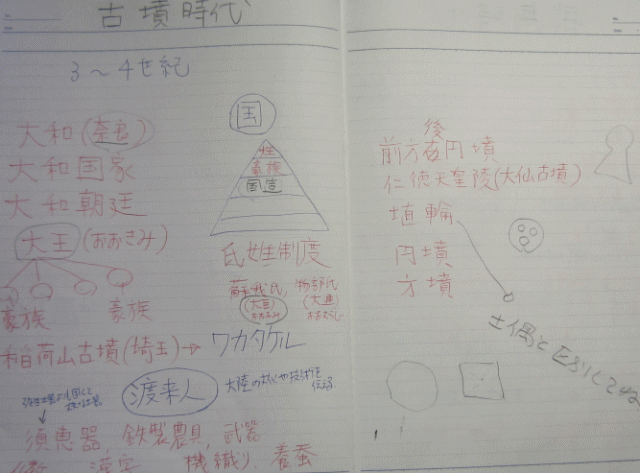 古墳時代
3〜4世紀
大和(奈良)
大和国家
大和朝廷
大王(おおきみ)
豪族 豪族
稲荷山古墳(埼玉)→ ワカタケル
国
姓
豪族
国造
氏姓制度
蘇我氏, 物部氏
(大臣) (大連)
おおおみ おおむらじ
渡来人
大陸の文化や技術を
伝える
須恵器, 鉄製農具, 武器
漢字 機織り, 養蚕
後
前方在円墳
仁徳天皇陵(大仙古墳)
埴輪
円墳
方墳
土偶と区別してね